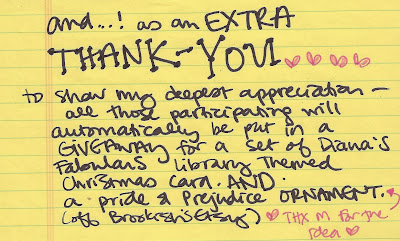 and...! as an EXTRA
THANK-YOU
to show my deepest appreciation —
all those participating will
automatically be put in a
GIVEAWAY for a set of Diana's
Fabulous Library Themed
Christmas Card. AND.
a pride & Prejudice ORNAMENT.
(off Brookish's Etsy) THX M for the
idea